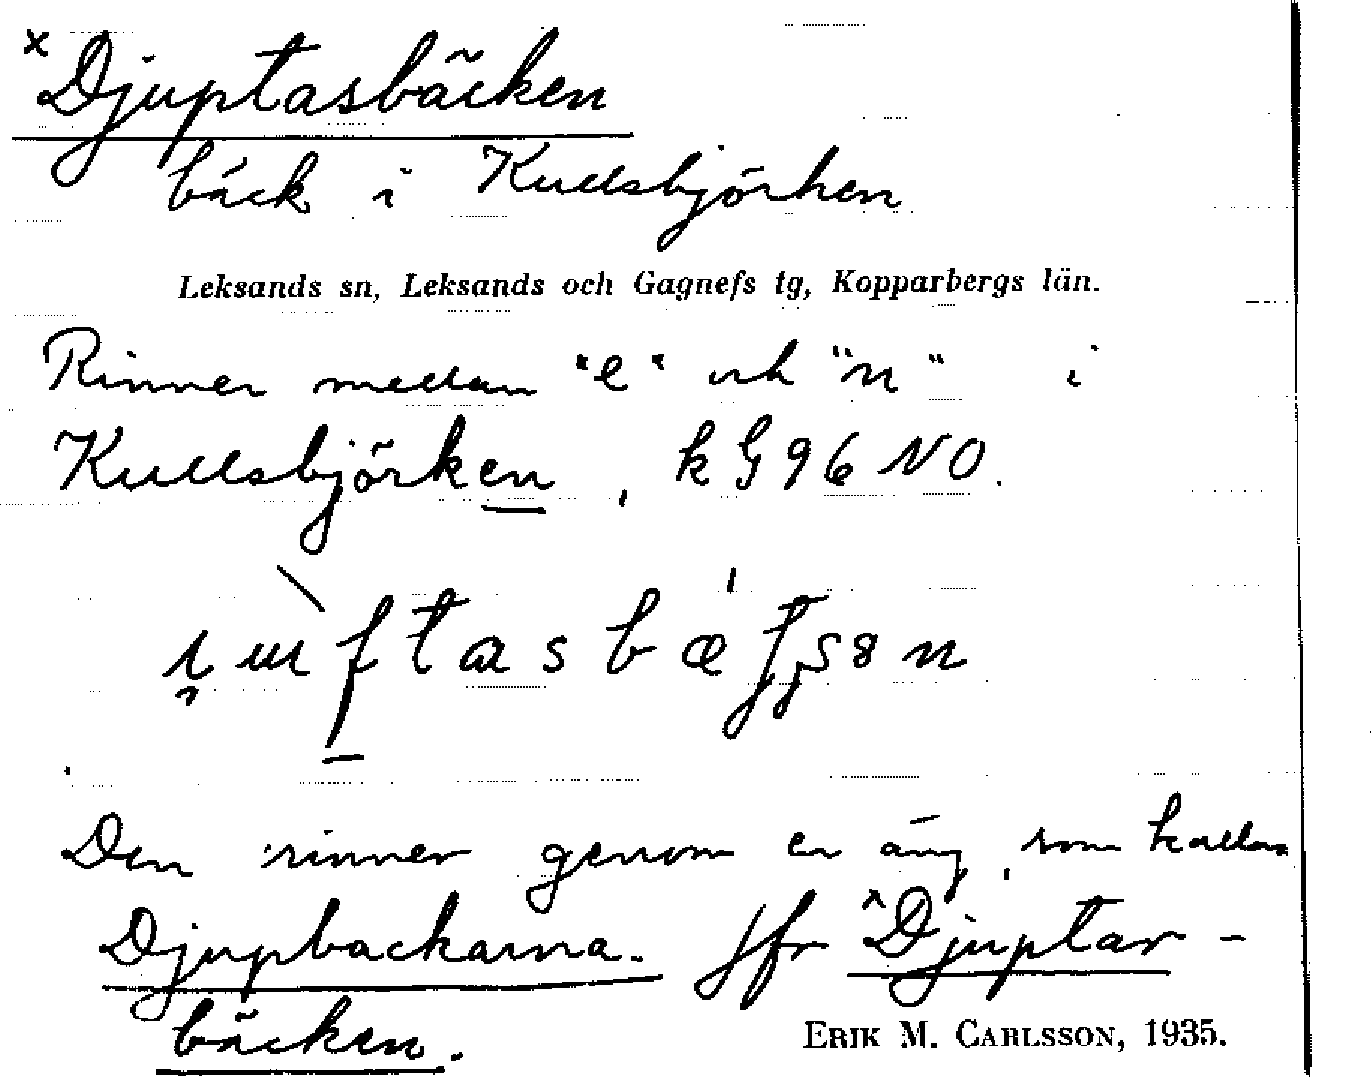 x Djuptasbäcken
bäck i Kullsbjörken
Leksands sn, Leksands och Gagnefs tg, Kopparbergs län.
Rinner mellan "l" och "n" i
Kullsbjörken, k G 96 NO.
Den rinner genom en äng, som kallas
Djupbackarna. Jfr x Djuptar-
bäcken.
ERIK M. CARLSSON, 1935.